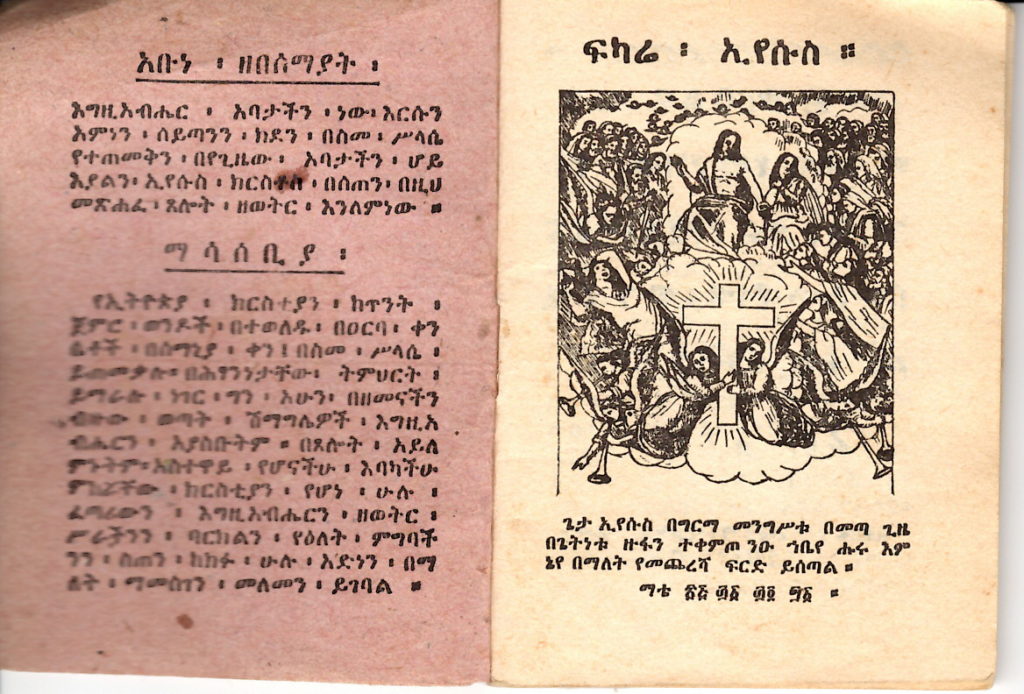 አቡነ ፡ ዘበሰማያት ፡
እግዚአብሔር ፡ አባታችን ፡ ነው፡ እርሱን
እምነን ፡ ሰይጣንን ፡ ክደን ፡ በስመ ፡ ሥላሴ
የተጠመቅን ፡ በየጊዜው ፡ አባታችን ፡ ሆይ
እያልን፡ ኢየሱስ ፡ ክርስቶስ ፡ በሰጠን፡ በዚህ
መጽሐፈ ፡ ጸሎት ፡ ዘወትር ፡ እንለምነው ።
ማሳሰቢያ ፡
የኢትዮጵያ ፡ ክርስተያን ፡ ከጥንት ፡
ጀምሮ ፡ ወንዶች ፡ በተወለዱ ፡ በዐርባ ፡ ቀን
ሴቶች ፡ በሰማኒያ ፡ ቀን ፤ በስመ ፡ ሥላሴ ፡
ይጠመቃሉ፡ በሕፃንነታቸው፡ ትምህርት ፡
ይማራሉ ፡ ነገር ፡ ግን ፡ አሁን፡ በዘመናችን
ብዙው ፡ ወጣት ፡ ሽማግሌዎች ፡ እግዚአ
ብሔርን ፡ አያስቡትም ። በጸሎት ፡ አይለ
ምኑትም፡ አስተዋይ ፡ የሆናችሁ ፡ እባካችሁ
ምከሯቸው ፡ ክርስቲያን ፡ የሆነ ፡ ሁሉ ፡
ፈጣሪውን ፡ እግዚአብሔርን ፡ ዘወትር ፡
ሥራችንን ፡ ባርክልን ፡ የዕለት ፡ ምግባች
ንን ፡ ስጠን ፡ ከክፉ ፡ ሁሉ ፡ አድነን ፡ በማ
ለት ፡ ማመስገን ፡ መለመን ፡ ይገባል ።
ፍካሬ ፡ ኢየሱስ ።
ጌታ ኢየሱስ በግርማ መንግሥቱ በመጣ ጊዜ
በጌትነቱ ዙፋን ተቀምጦ ንዑ ኀቤየ ሑሩ እም
ኔየ በማለት የመጨረሻ ፍርድ ይሰጣል ።
ማቴ ፳፭ ፴፩